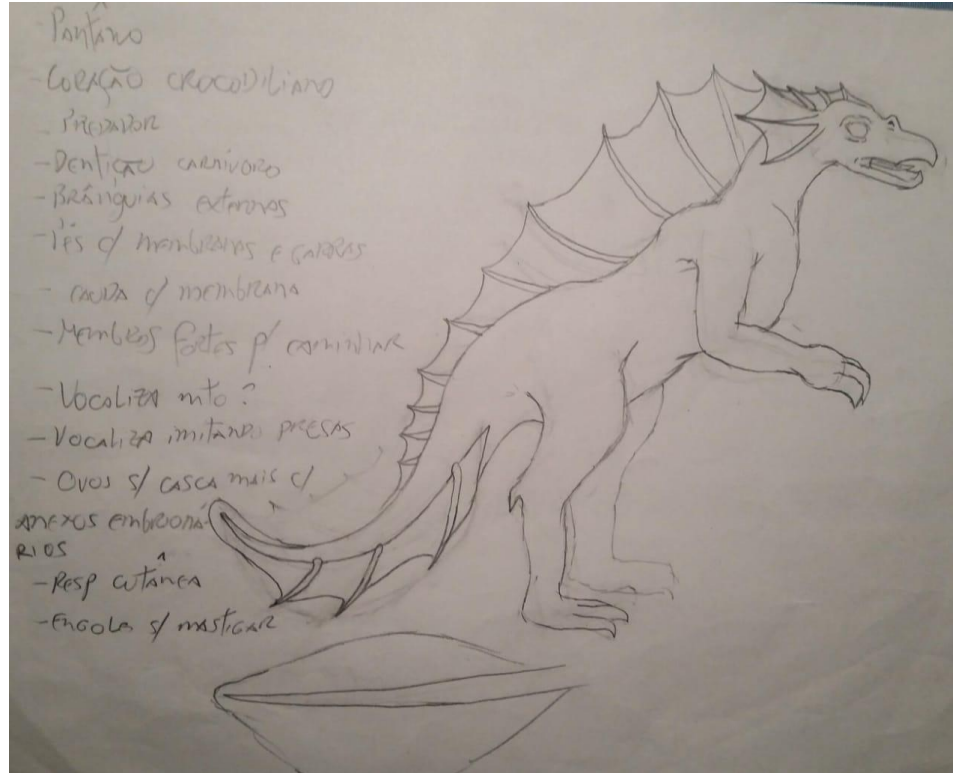 Pantâno
- CORAÇÃO CROCODILIANO
- PREDADOR
- DENTIÇÃO CARNÍVORO
- BRÂNQUIAS EXTERNAS
- PÉS c/ MEMBRANAS E GARRAS
- CAUDA c/ MEMBRANA
- MEMBROS fortes p/ CAMINHAR
- VOCALIZA mto?
- VOCALIZA imitando PRESAS
- OVOS s/ CASCA mais c/
ANEXOS EMBRIONÁ-
RIOS
- RESP CUTÂNEA
- ENGOLE s/ MASTIGAR